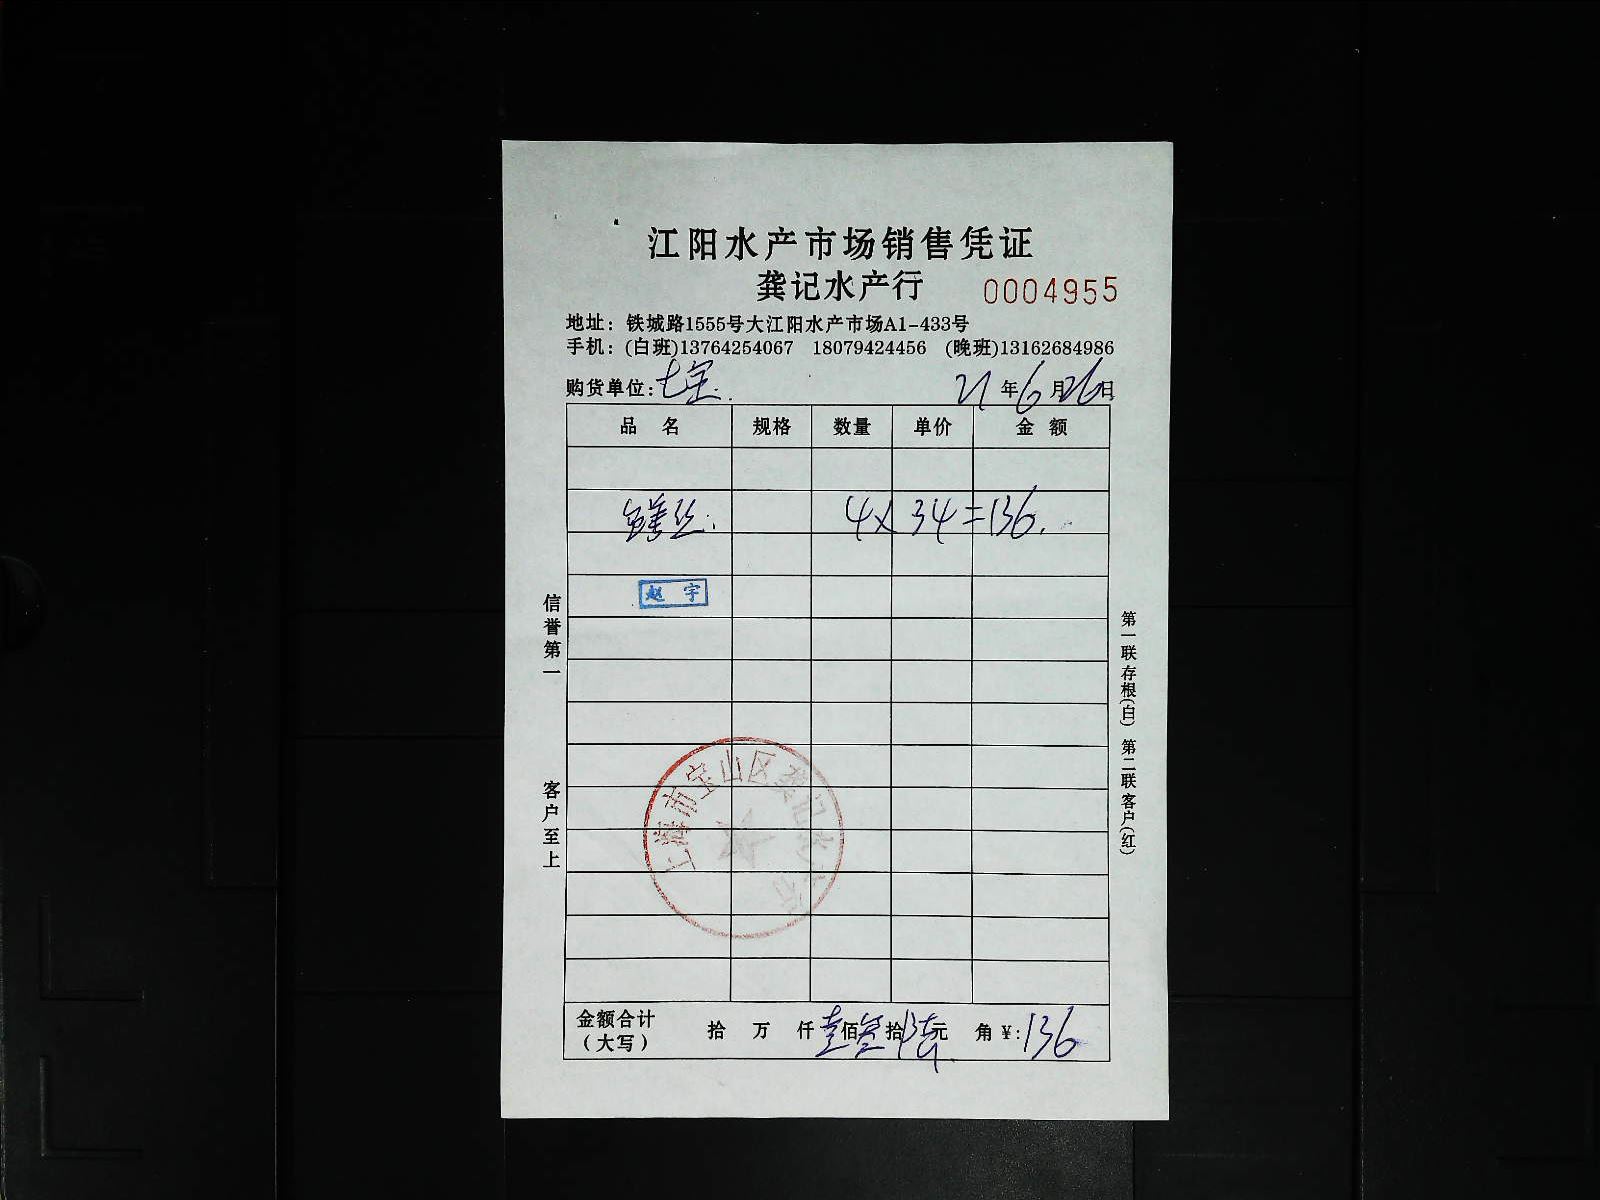 江阳水产市场销售凭证
龚记水产行 0004955
地址：铁城路1555号大江阳水产市场A1-433号
手机：(白班)13764254067 18079424456 (晚班)13162684986
购货单位：七宝. 21年6月26日
品 名 规格 数量 单价 金 额
鳝丝. 4×34=136.
赵 宇
信誉第一
客户至上
第一联存根(白) 第二联客户(红)
上海市宝山区龚记水产行
金额合计 拾 万 仟壹佰叁拾陆元 角 ¥:136
（大写）